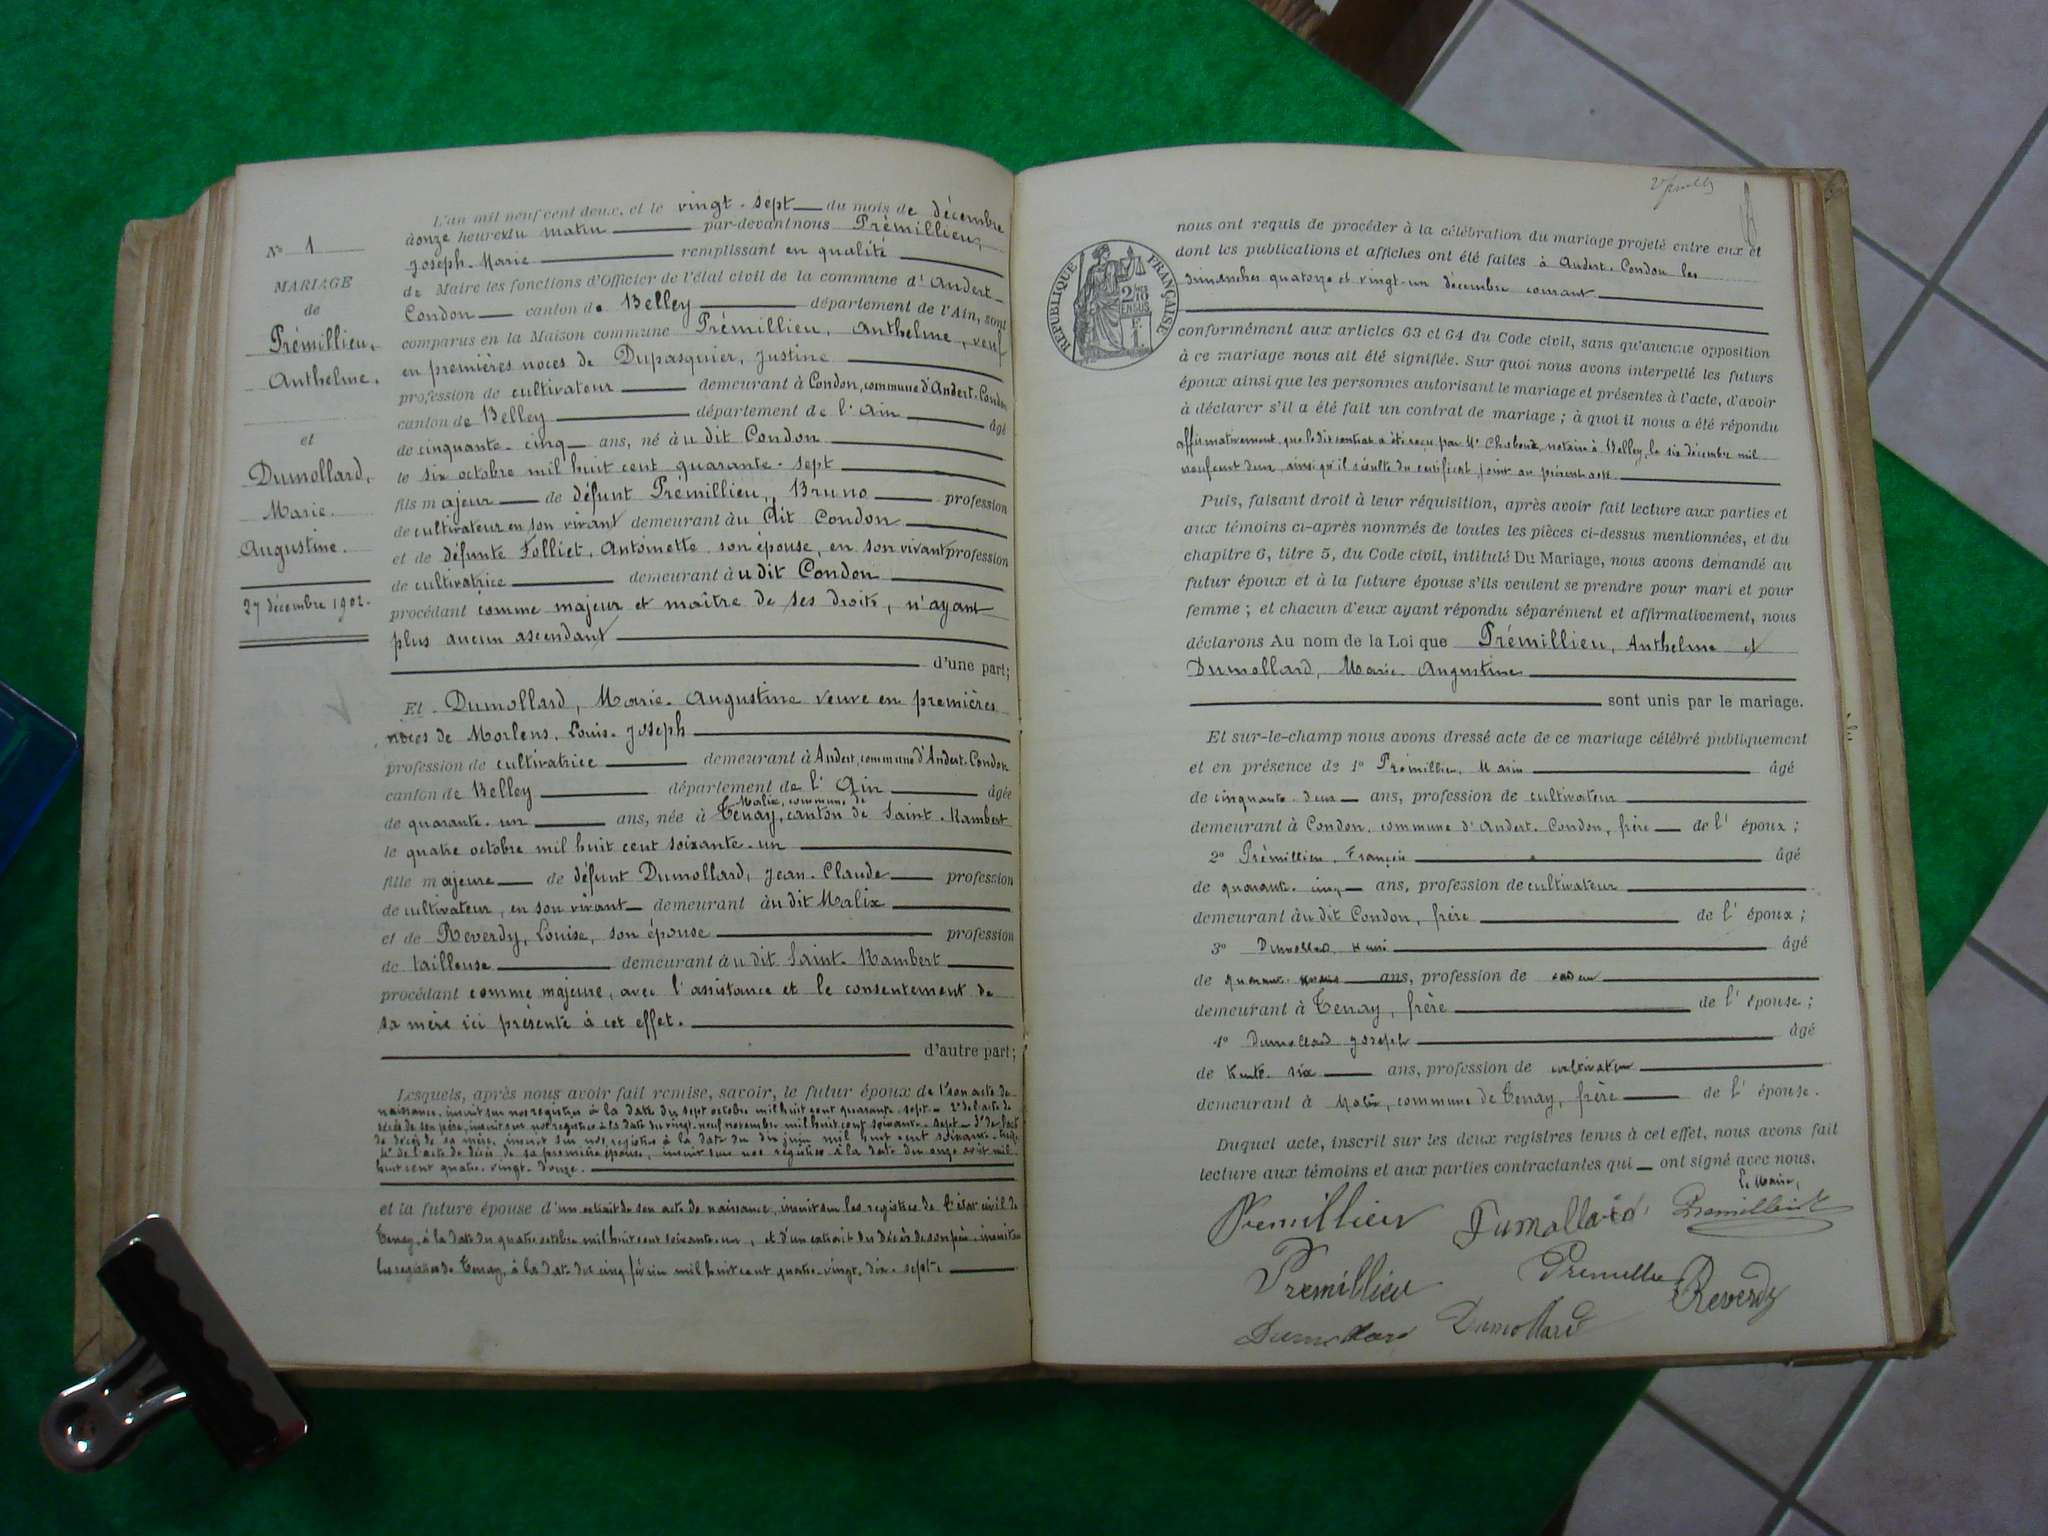 L'an mil neuf cent deux, et le vingt-sept du mois de décembre
à onze heures du matin par-devant nous Prémillieu,
Joseph-Marie remplissant en qualité
de Maire les fonctions d'Officier de l'état civil de la commune d'Andert-
Condon canton de Belley département de l'Ain, sont
comparus en la Maison commune Prémillieu, Anthelme, veuf
en premières noces de Dupasquier, Justine
profession de cultivateur demeurant à Condon, commune d'Andert-Condon
canton de Belley département de l'Ain âgé
de cinquante-cinq ans, né à udit Condon
le six octobre mil huit cent quarante-sept
fils majeur de défunt Prémillieu, Bruno profession
de cultivateur en son vivant demeurant àu dit Condon
et de défunte Folliet, Antoinette son épouse, en son vivant profession
de cultivatrice demeurant àu dit Condon
procédant comme majeur et maître de ses droits, n'ayant
plus aucun ascendant
d'une part;
Et Dumollard, Marie-Augustine veuve en premières
noces de Morlens, Louis-Joseph
profession de cultivatrice demeurant à Andert, commune d'Andert-Condon
canton de Belley département de l'Ain âgée
Malix, commune de
de quarante-un ans, née à Tenay, canton de Saint-Rambert
le quatre octobre mil huit cent soixante-un
fille majeure de défunt Dumollard, Jean-Claude profession
de cultivateur, en son vivant demeurant àu dit Malix
et de Reverdy, Louise, son épouse profession
de tailleuse demeurant àu dit Saint-Rambert
procédant comme majeure, avec l'assistance et le consentement de
sa mère ici présente à cet effet.
d'autre part;
Lesquels, après nous avoir fait remise, savoir, le futur époux de 1° son acte de
naissance, inscrit sur nos registres à la date du sept octobre mil huit cent quarante-sept - 2° de l'acte de
décès de son père, inscrit sur nos registres à la date du vingt-neuf novembre mil huit cent soixante-sept - 3° de l'acte
de décès de sa mère, inscrit sur nos registres à la date du dix juin mil huit cent soixante-
4° de l'acte de décès de sa première épouse, inscrit sur nos registres à la date du onze août mil
huit cent quatre-vingt-douze.
et la future épouse d'un extrait de son acte de naissance, inscrit sur les registres de l'état civil de
Tenay, à la date du quatre octobre mil huit cent soixante-un, et d'un extrait du décès de son père, inscrit sur
les registres de Tenay, à la date du cinq février mil huit cent quatre-vingt-dix-sept
N° 1
MARIAGE
de
Prémillieu,
Anthelme,
et
Dumollard,
Marie
Augustine.
27 décembre 1902.
RÉPUBLIQUE FRANÇAISE
nous ont requis de procéder à la célébration du mariage projeté entre eux et
dont les publications et affiches ont été faites à Andert-Condon les
dimanches quatorze et vingt-un décembre courant
conformément aux articles 63 et 64 du Code civil, sans qu'aucune opposition
à ce mariage nous ait été signifiée. Sur quoi nous avons interpellé les futurs
époux ainsi que les personnes autorisant le mariage et présentes à l'acte, d'avoir
à déclarer s'il a été fait un contrat de mariage; à quoi il nous a été répondu
affirmativement que ledit contrat a été reçu par Me notaire à Belley, le six décembre mil
neuf cent deux, ainsi qu'il résulte du certificat joint au présent acte
Puis, faisant droit à leur réquisition, après avoir fait lecture aux parties et
aux témoins ci-après nommés de toutes les pièces ci-dessus mentionnées, et du
chapitre 6, titre 5, du Code civil, intitulé Du Mariage, nous avons demandé au
futur époux et à la future épouse s'ils veulent se prendre pour mari et pour
femme; et chacun d'eux ayant répondu séparément et affirmativement, nous
déclarons Au nom de la Loi que Prémillieu, Anthelme et
Dumollard, Marie-Augustine
sont unis par le mariage.
Et sur-le-champ nous avons dressé acte de ce mariage célébré publiquement
et en présence de 1° Prémillieu, Marin âgé
de cinquante-deux ans, profession de cultivateur
demeurant à Condon, commune d'Andert-Condon, frère de l'époux;
2° Prémillieu, François âgé
de quarante-cinq ans, profession de cultivateur
demeurant àu dit Condon, frère de l'époux;
3° Dumollard, Henri âgé
de quarante ans, profession de
demeurant à Tenay, frère de l'épouse;
4° Dumollard Joseph âgé
de trente-six ans, profession de cultivateur
demeurant à Malix, commune de Tenay, frère de l'épouse.
Duquel acte, inscrit sur les deux registres tenus à cet effet, nous avons fait
lecture aux témoins et aux parties contractantes qui ont signé avec nous.
Le Maire,
Premillieu Dumollard Premillieu
Premillieu Premillieu Reverdy
Dumollard Dumollard